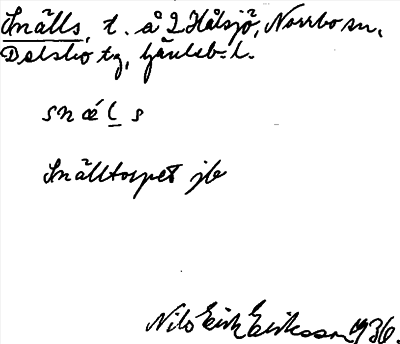 Snälls, t. å 2 Hålsjö, Norrbo sn,
Delsbo tg, Gävleb. l.
snæl s
Snälltorpet jb
Nils Erik Eriksson 1936.